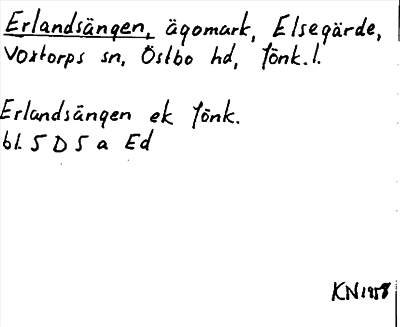 Erlandsängen, ägomark, Elsegärde,
Voxtorps sn, Östbo hd, Jönk. l.
Erlandsängen ek Jönk.
bl. 5 D 5 a Ed
KN 1958